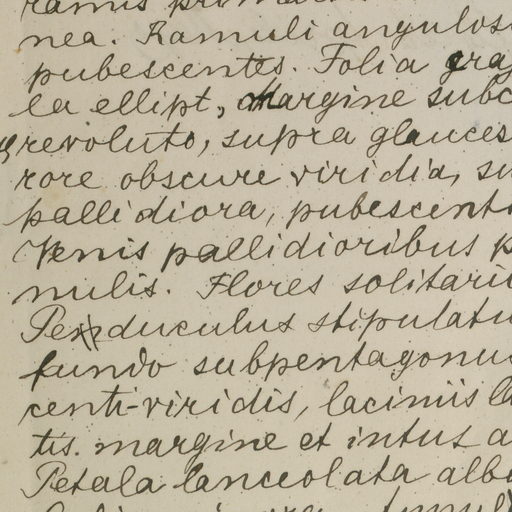 ramis
nea. Ramuli angulosi
pubescentes. Folia
la ellipt, margine subc
revoluto, supra glauces
rore obscure viridia, su
pallidiora, pubescenti
Venis pallidioribus p
nulis. Flores solitarii
Pedduculus stipulatu
fundo subpentagonu
centi-viridis, laciniis la
tis. margine et intus a
Petala lanceolata albo